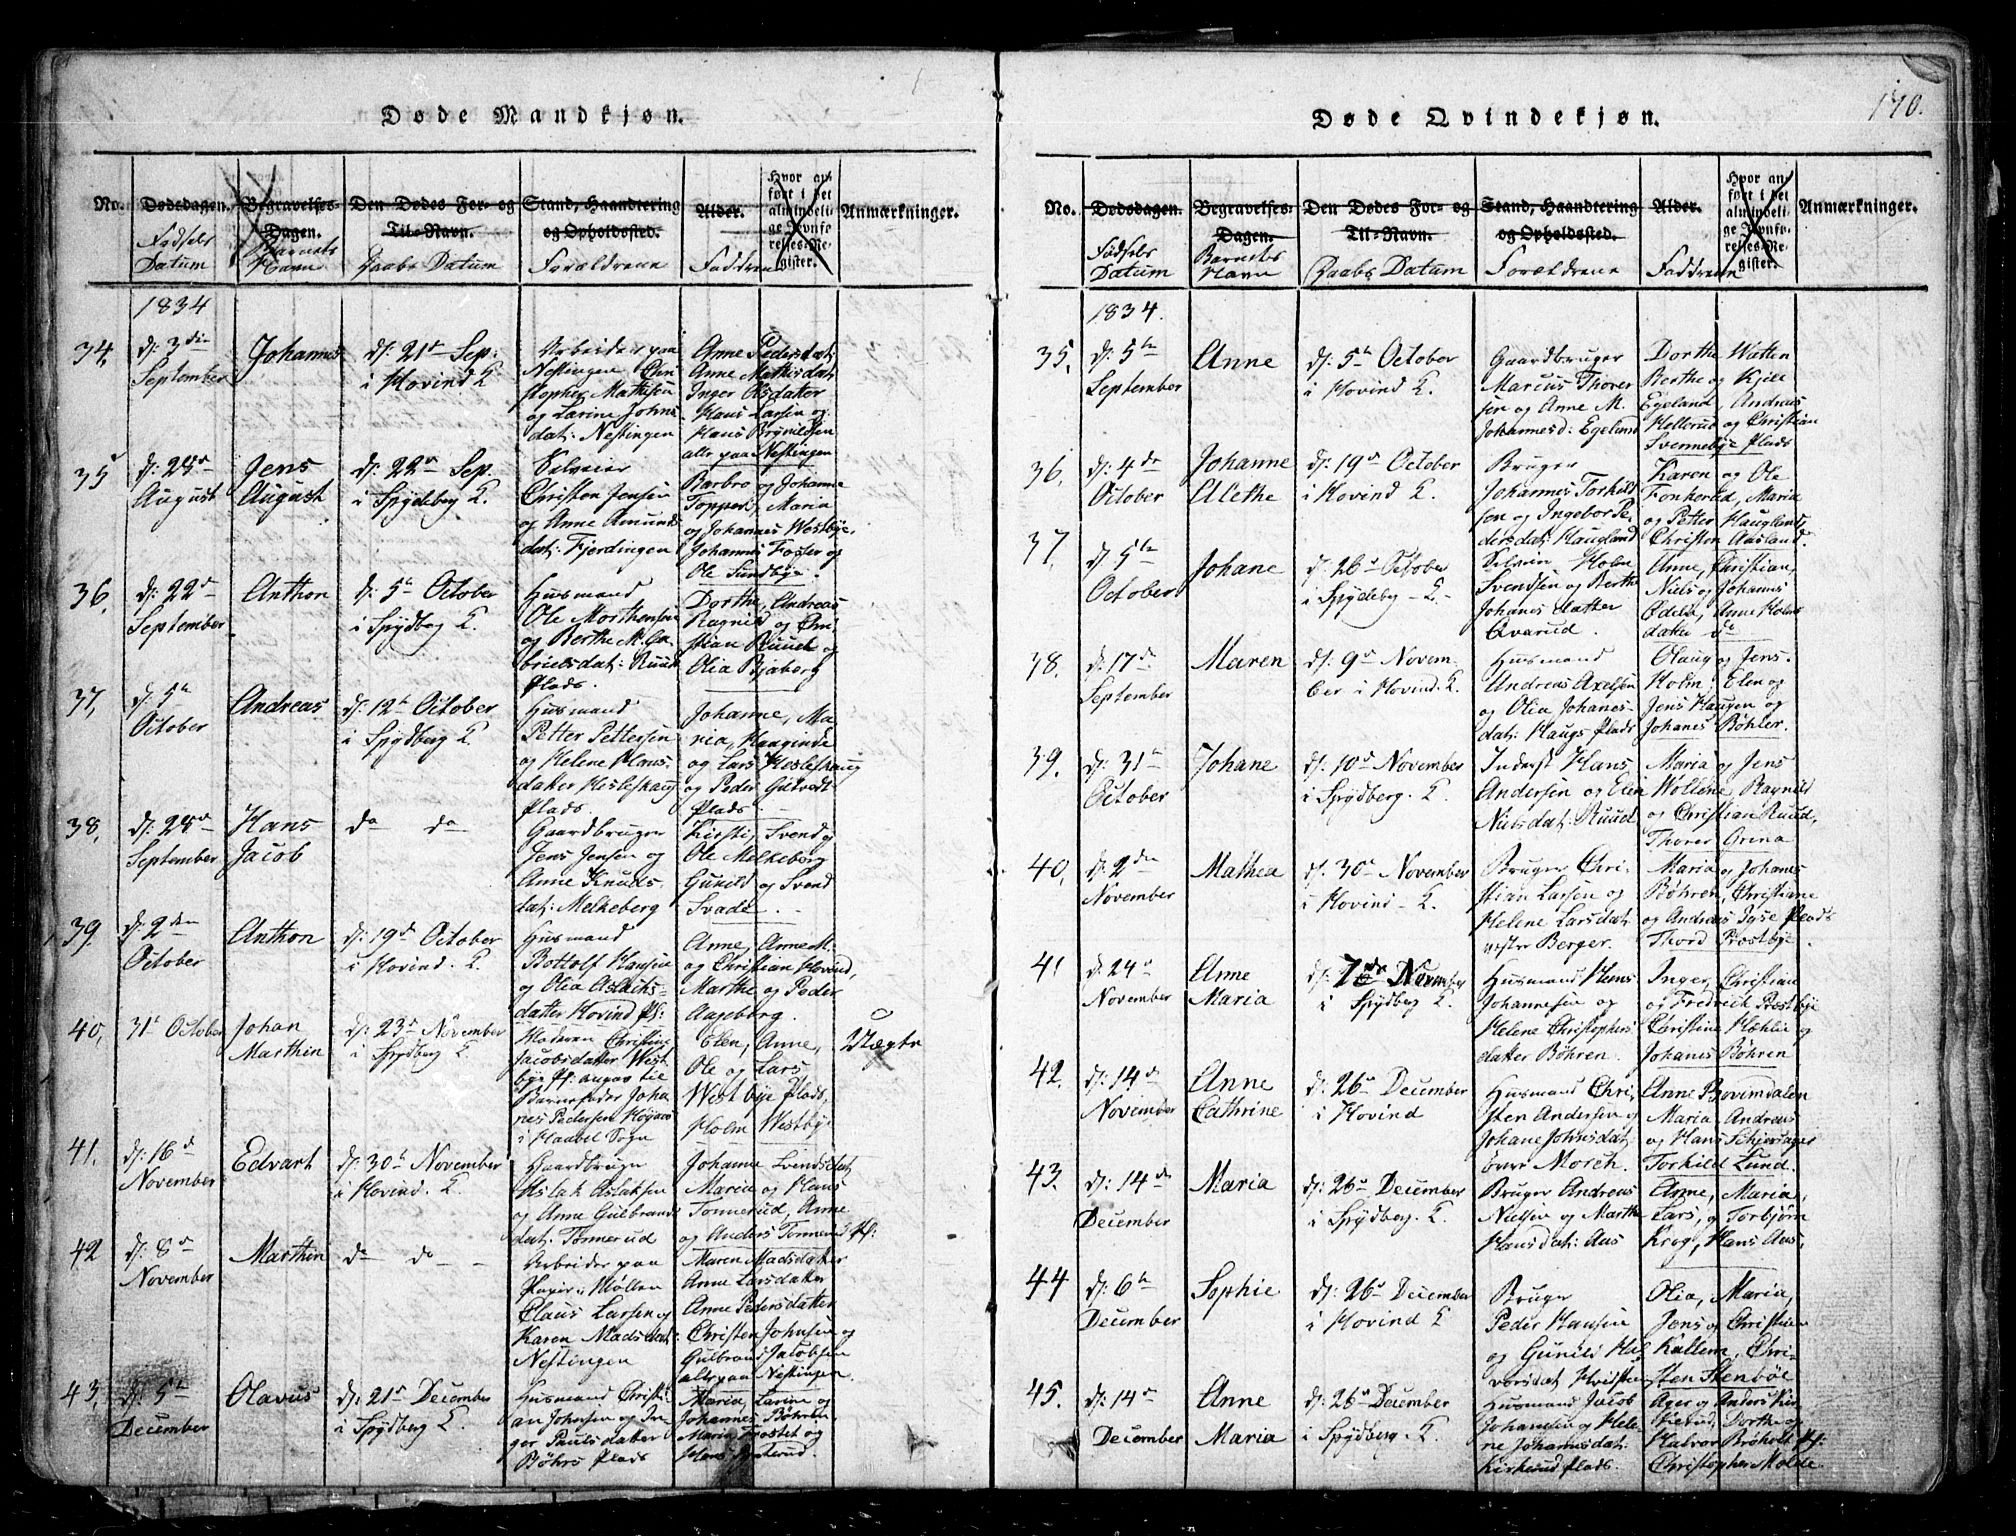 170.
Døde Mandkjøn.
No.
Dødsdagen.
Fødsels
Datum
Begravelses-
Dagen.
Barnets
Navn
Den Dødes For- og
Til-Navn.
Daabs Datum
Stand, Haandtering
og Opholdssted.
Forældrene
Alder.
Faddrene
Hvor an-
ført i det
almindeli-
ge Jevnfø-
relses-Re-
gister.
Anmærkninger.
1834
34.
d: 3die
September
Johannes
d: 21de Sep:
i Hovind K
Arbeider paa
Nestingen Chri
stopher Mathisen
og Larine Johns
dat: Nestingen
Anne Pedersdat:
Anne Mathisdat:
Inger Olsdatter
Hans Larsen og
Hans Brynildsen
alle paa Nestingen
35
d: 28de
August
Jens
August
d: 22de Sep.
i Spydeberg K.
Selveier
Christen Jensen
og Anne Amunds
dat: Fjerdingen
Barbro og Johanne
Topper, Maria
og Johannes Westbye,
Johannes Foster og
Ole Sundbye.
36.
d: 22de
September
Anthon
d: 5te October
i Spydberg K.
Husmand
Ole Morthensen
og Berthe M. Ga
brielsdat: Ruud
Plads.
Dorthe, Andreas
Ragnild og Chri
stian Ruud og
Olia Bjaberg
37,
d: 5te
October
Andreas
d: 12te October
i Spydberg K.
Husmand
Petter Pettersen
og Helene Hans
datter Hesleskaug
Plads.
Johanne, Ma
ria,
og Lars Hesleskaug
og Peder Gilvedt
Plads
38,
d: 28de
September
Hans
Jacob
do do
Gaardbruger
Jens Jensen og
Anne Knuds
dat: Melkeberg
Kirsti, Svend og
Ole Melkeberg
Gunild og Svend
Svade.
39.
d: 2den
October
Anthon
d: 19de October
i Hovind. K.
Husmand
Bottolf Hansen
og Olia Aslachs-
datter Hovind Pl:
Anne, Anne M.
og Christian Hovind,
Marthe og Peder
Aageberg.
40,
31te October
Johan
Marthin
d: 23de November
i Spydberg K
Moderen Christine
Jacobsdatter West
bye Pl: angav til
Barnefader Joha
nes Pedersen
i Haabøl Sogn
Elen, Anne,
Ole og Lars
Westbye Plads,
Holm Westbye
Uægte
41.
d: 16de
November
Edvart
d: 30te November
i Hovind. K.
Gaardbruger
Aslak Aslaksen
og Anne Gulbrands
dat: Tonnerud
Johanne Svendsdat
Maria og Hans
Tonnerud, Anne
og Anders Tonnerud Pl:
42
d: 8de
November
Marthin
do do
Arbeider paa
Papir-Møllen
Claus Larsen og
Karen Madsdat:
Nestingen
Maren Madsdatter
Anne Larsdatter
Anne Pedersdatter
Christen Johnsen og
Gulbrand Jacobsen
alle paa Nestingen
43.
d: 5te
December
Olavus
d: 21de December
i Spydberg K
Husmand Christi
an Johnsen og In
ger Paulsdatter
Bøhrs Plads
Maria, Larine og
Johannes Bøhren
Maria Frostet og
Døde Qvindekjøn.
No.
Dødsdagen.
Fødsels
Datum
Begravelses-
Dagen.
Barnets
Navn
Den Dødes For- og
Til-Navn.
Daabs Datum
Stand, Haandtering
og Opholdssted.
Forældrene
Alder.
Faddrene
Hvor an-
ført i det
almindeli-
ge Jevnfø-
relses-Re-
gister.
Anmærkninger.
1834.
35.
d: 5te
September
Anne
d: 5te October
i Hovind K.
Gaardbruger
Marcus Thorer
sen og Anne M.
Johannesd: Egeland
Dorthe Watten
Berthe og Kjell
Egeland, Andreas
Hellerud og Christian
Svennebye Plads
36.
d: 4de
October
Johanne
Alethe
d: 19de October
i Hovind K.
Bruger
Johannes Torkild
sen og Ingebor Pe
dersdat: Haugland
Karen og Ole
Fonkerud, Maria
og Petter Haugland,
Christen Aasland.
37.
d: 5te
October
Johane
d: 26de October
i Spydeby - K.
Selveier Holm
Svendsen og Berthe
Johanes datter
Qvarud.
Anne, Christian,
Niels og Johannes
Ødelo, Anne Holms
datter do
38.
d. 17de
September
Maren
d: 9de Novem
ber i Hovind. K.
Husmand
Andreas Axelsen
og Olia Johanes-
dat: Haugs Plads
Olaug og Jens
Holm, Elen og
Jens Haugen og
Johanes Bøhler.
39.
d: 31te
October
Johane
d: 10de November
i Spydberg. K.
Inderst Hans
Andersen og Elen
Nielsdat: Ruud
Maria og Jens
Wollene, Ragnild
og Christian Ruud,
Thorer Grena
40,
d: 2den
November
Mathea
d: 30te November
i Hovind - K.
Bruger Chri-
stian Larsen og
Helene Larsdat:
vestre Berger.
Maria og Johanes
Bøhren, Christiane
og Andreas Tyse Plads
Thord Prestbye
41
d. 24de
November
Anne
Maria
i Spydberg K.
Husmand Hans
Johannesen og
Helene Christophers
datter Bøhren.
Inger, Christian
og Fredrick Prestbye
Christine Mæhlie og
Johanes Bøhren
42.
d: 14de
November
Anne
Cathrine
d: 26de December
i Hovind
Husmand Chri-
sten Andersen og
Johane Johnsdat:
øvre Morch.
Anne Bovimdalen
Maria, Andreas
og Hans Schjersager
Torkild Lund.
43.
d: 14de
December
Maria
d: 26de December
i Spydberg. K.
Bruger Andreas
Nielsen og Marthe
Hansdat: Aas
Anne, Maria,
Lars, og Torbjørn
Krog, Hans Aas,
44
d: 6te
December
Sophie
d: 26de December
i Hovind K
Bruger
Peder Hansen
og Gunild Hal
vorsdat
Olia, Maria,
Jens og Christen
Kallem, Chri-
sten Stenbøl
45.
d: 14de
December
Anne
Maria
d: 26de December
i Spydberg. K.
Husmand Jacob
Johansen og Hele-
ne Johannsdat:
Kirkerud Plads.
Ager og Anders Kir
Dorthe og
Halvor Brøholt Pl:
Christopher Molde.